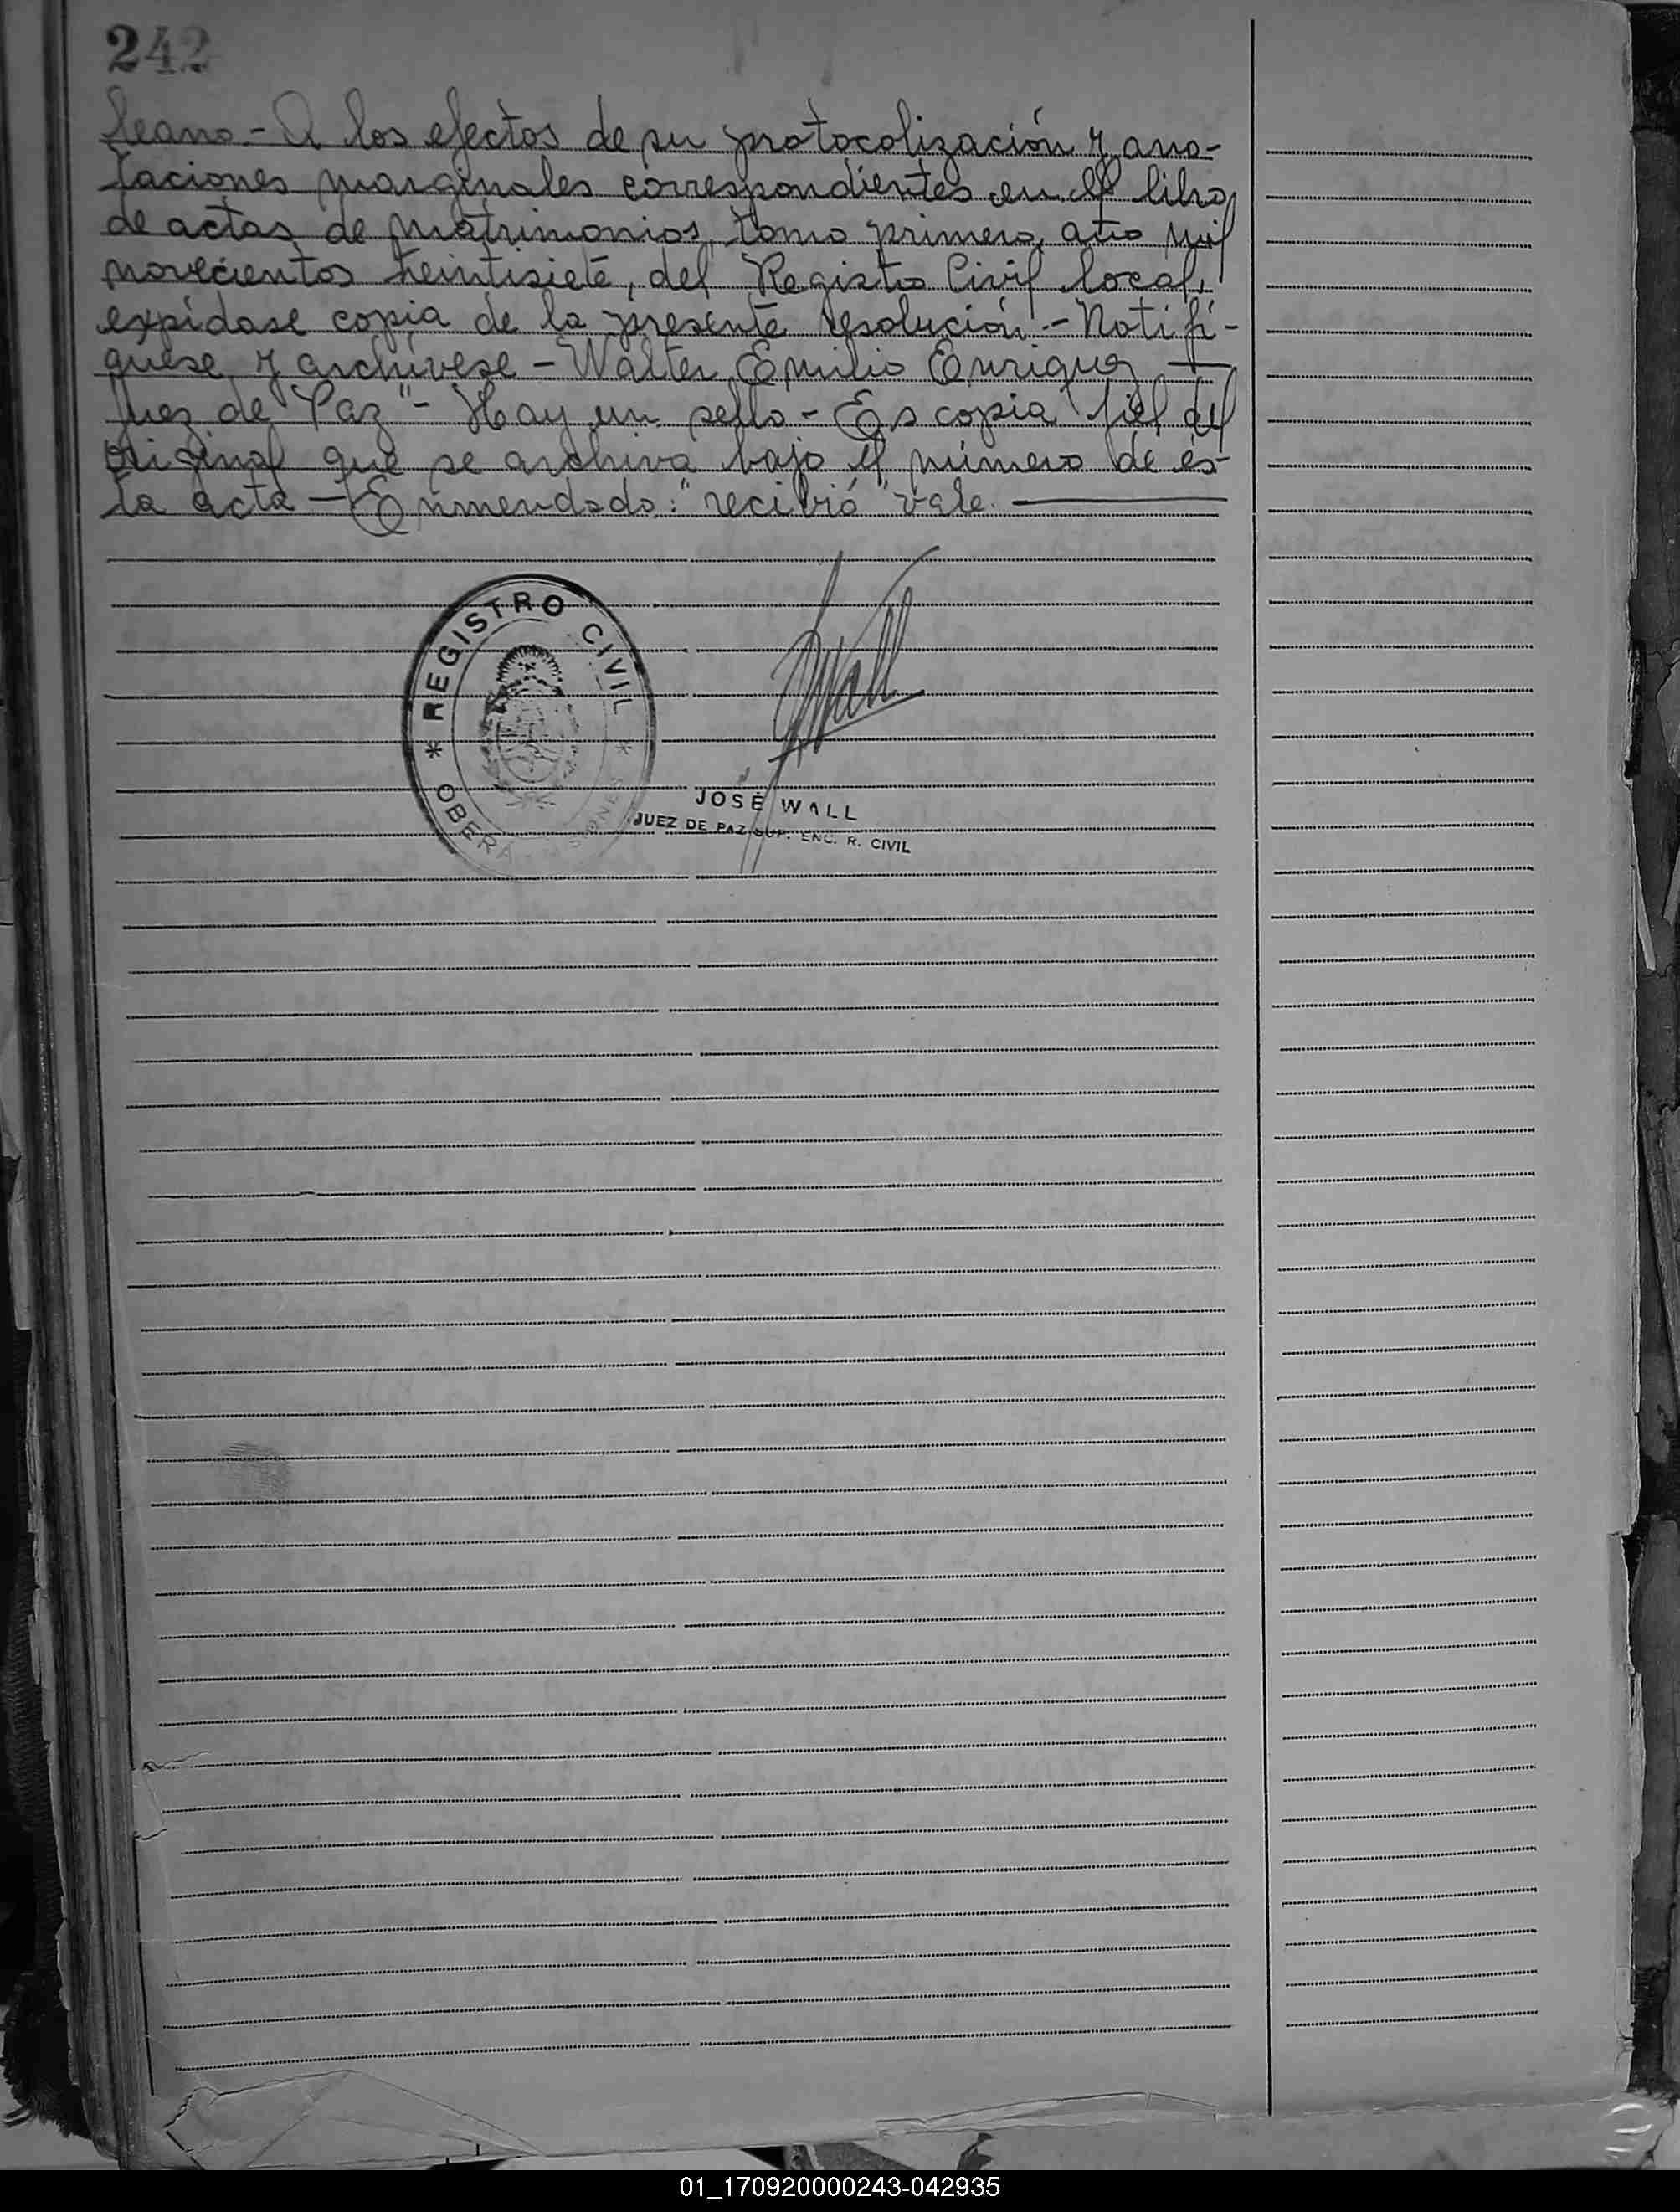 242
leano.- A los efectos de su protocolización y ano-
taciones marginales correspondientes en el libro
de actas de matrimonios, tomo primero, año mil
novecientos treintisiete, del Registro Civil local,
expídase copia de la presente resolución.- Notifí-
quese y archívese - Walter Emilio Enriquez -
Juez de Paz"- Hay un sello - Es copia fiel del
original que se archiva bajo el número de és-
ta acta - Enmendado: "recibió" vale.
REGISTRO CIVIL
* OBERA - SIONES *
JWall
JOSÉ WALL
JUEZ DE PAZ SUP. ENC. R. CIVIL
01_170920000243-042935